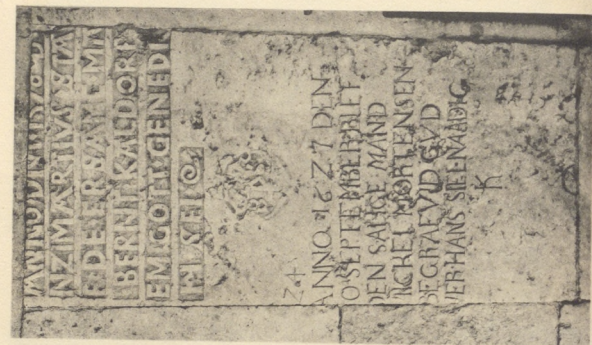 ANNO
NZI MARTIVS STA
EDE ERSAME MA
BERNT KALDORP
EM GOTT GENEDI
24
ANNO 1627 DEN
O SEPTEMBER BLEF
DEN SALIGE MAND
MICKEL MORTENSEN
BEGRAFVID GVD
VERHANS
K